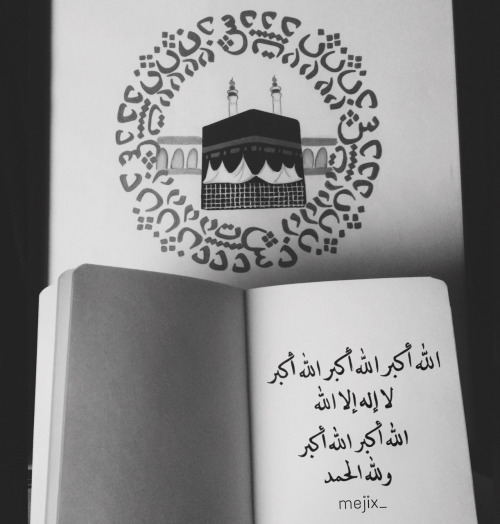 الله أكبر الله أكبر الله أكبر
لا إله إلا الله
الله أكبر الله أكبر
ولله الحمد
mejix_